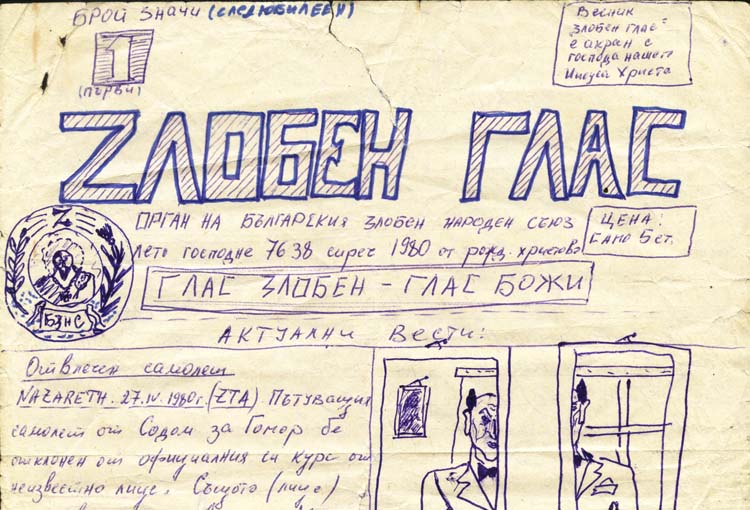 БРОЙ ЗНАЧИ (СЛЕДЮБИЛЕЕН)
1
(първи)
Весник
"Злобен глас"
е акран с
господа нашего
Иисуй Христа
ZЛОБЕН ГЛАС
ОРГАН НА БЪЛГАРСКИЯ ЗЛОБЕН НАРОДЕН СЪЮЗ
ЦЕНА:
САМО 5 ст.
лето господне 7638 сиреч 1980 от рожд. христово
БЗНС
ГЛАС ЗЛОБЕН - ГЛАС БОЖИ
АКТУАЛНИ ВЕСТИ:
Отвлечен самолет
NAZARETH. 27.IV.1980г. (ZTA) Пътуващия
самолет от Содом за Гомор бе
отклонен от официалния си курс от
неизвестно лице. Същото (лице)